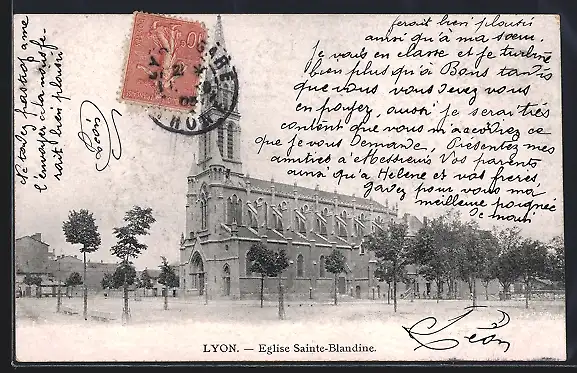 ferait bien plaisir
ainsi qu'à ma sœur.
Je vous en classe et je turbine
bien plus qu'à Bons tandis
que vous vous devez vous
en payez, aussi je serai très
content que vous m'accordiez ce
que je vous Demande, Présentez mes
amitiés à Messieurs Vos parents
ainsi qu'à Hélène et vos frères
Gardez pour vous ma
meilleure poignée
De main
Léon
Ne tardez pas trop à me
l'envoyer à la maison se-
rait bien plaisir
10
LYON GARE
RHONE
LYON. — Eglise Sainte-Blandine.